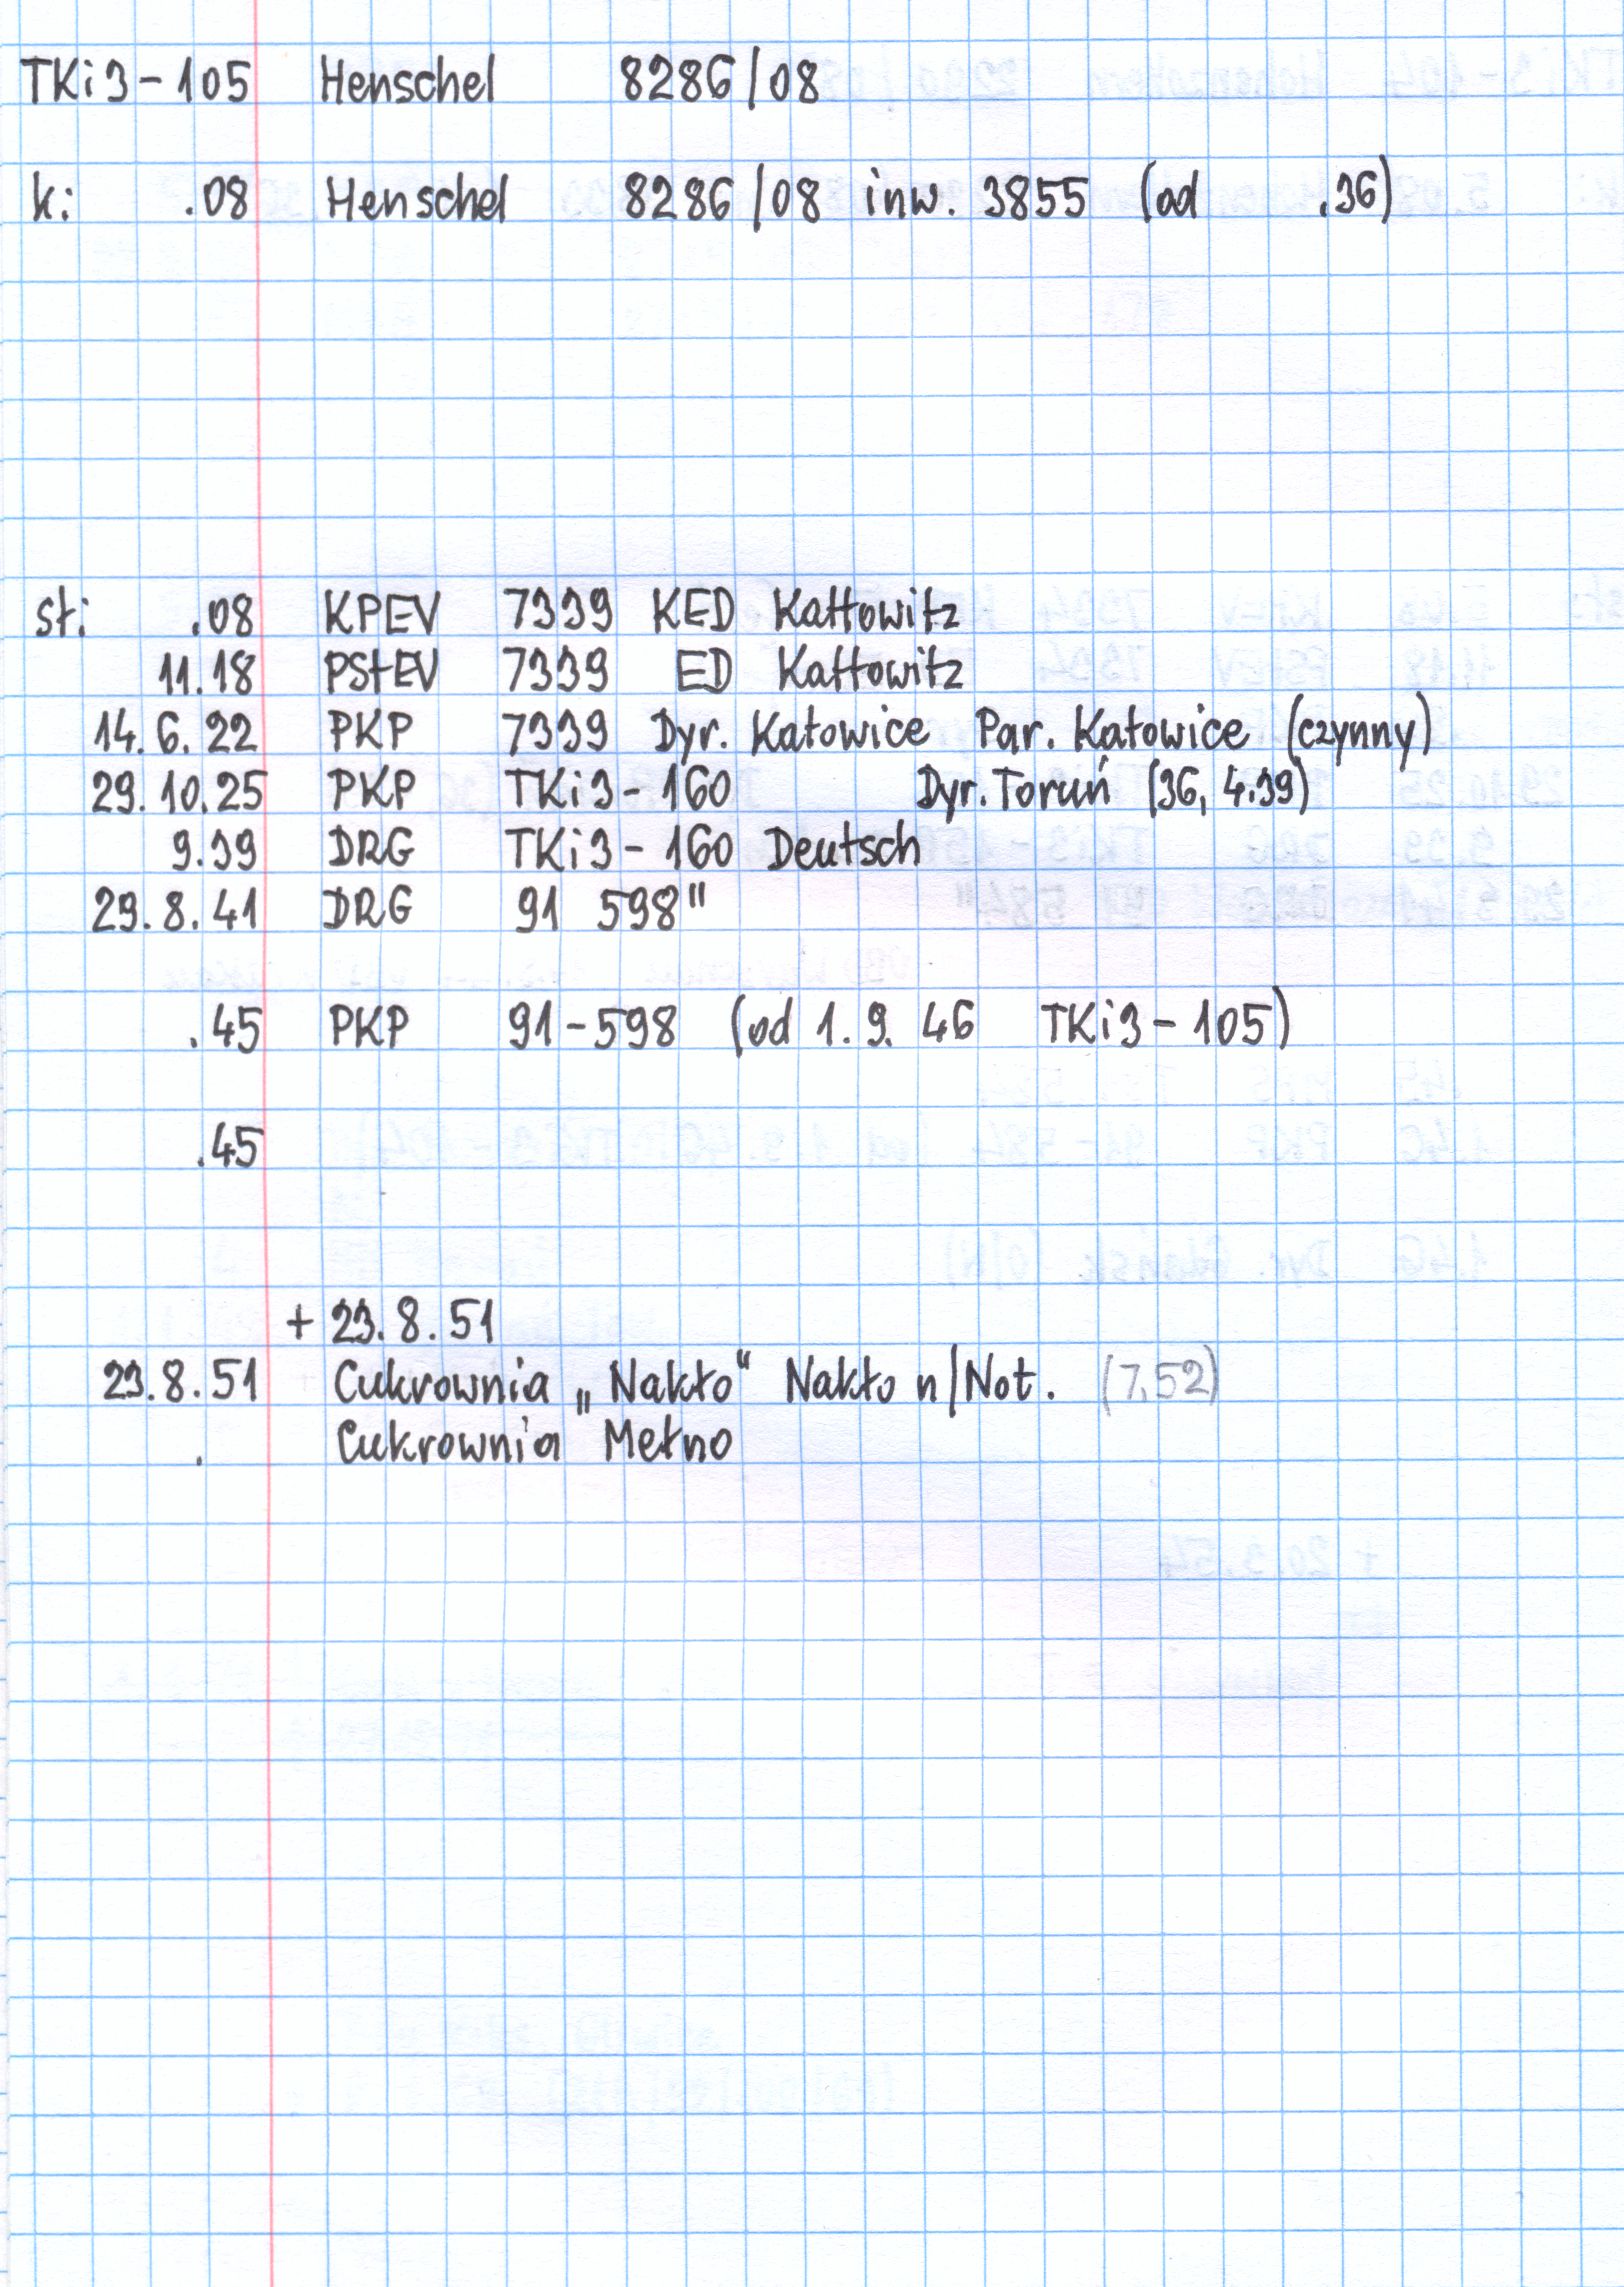 TKi3-105 Henschel 8286/08
k: .08 Henschel 8286/08 inw. 3855 (od .36)
st: .08 KPEV 7339 KED Kattowitz
11.18 PStEV 7339 ED Kattowitz
14.6.22 PKP 7339 Dyr. Katowice Par. Katowice (czynny)
29.10.25 PKP TKi3-160 Dyr. Toruń (36, 4.39)
9.39 DRG TKi3-160 Deutsch
29.8.41 DRG 91 598"
.45 PKP 91-598 (od 1.9.46 TKi3-105)
.45
+ 23.8.51
23.8.51 Cukrownia „Nakło" Nakło n/Not. (7,52)
. Cukrownia Mełno